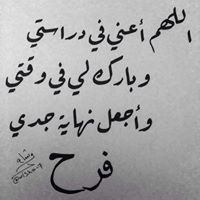 اللهم أعني في دراستي
وبارك لي في وقتي
وأجعل نهاية جدي
فرح